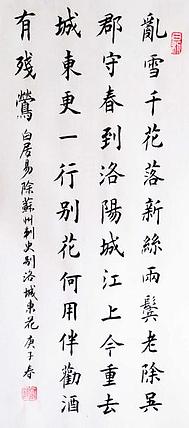 亂雪千花落新絲兩鬢老除吳
郡守春到洛陽城江上今重去
城東更一行別花何用伴勸酒
有殘鶯白居易除蘇州刺史別洛城東花庚子春